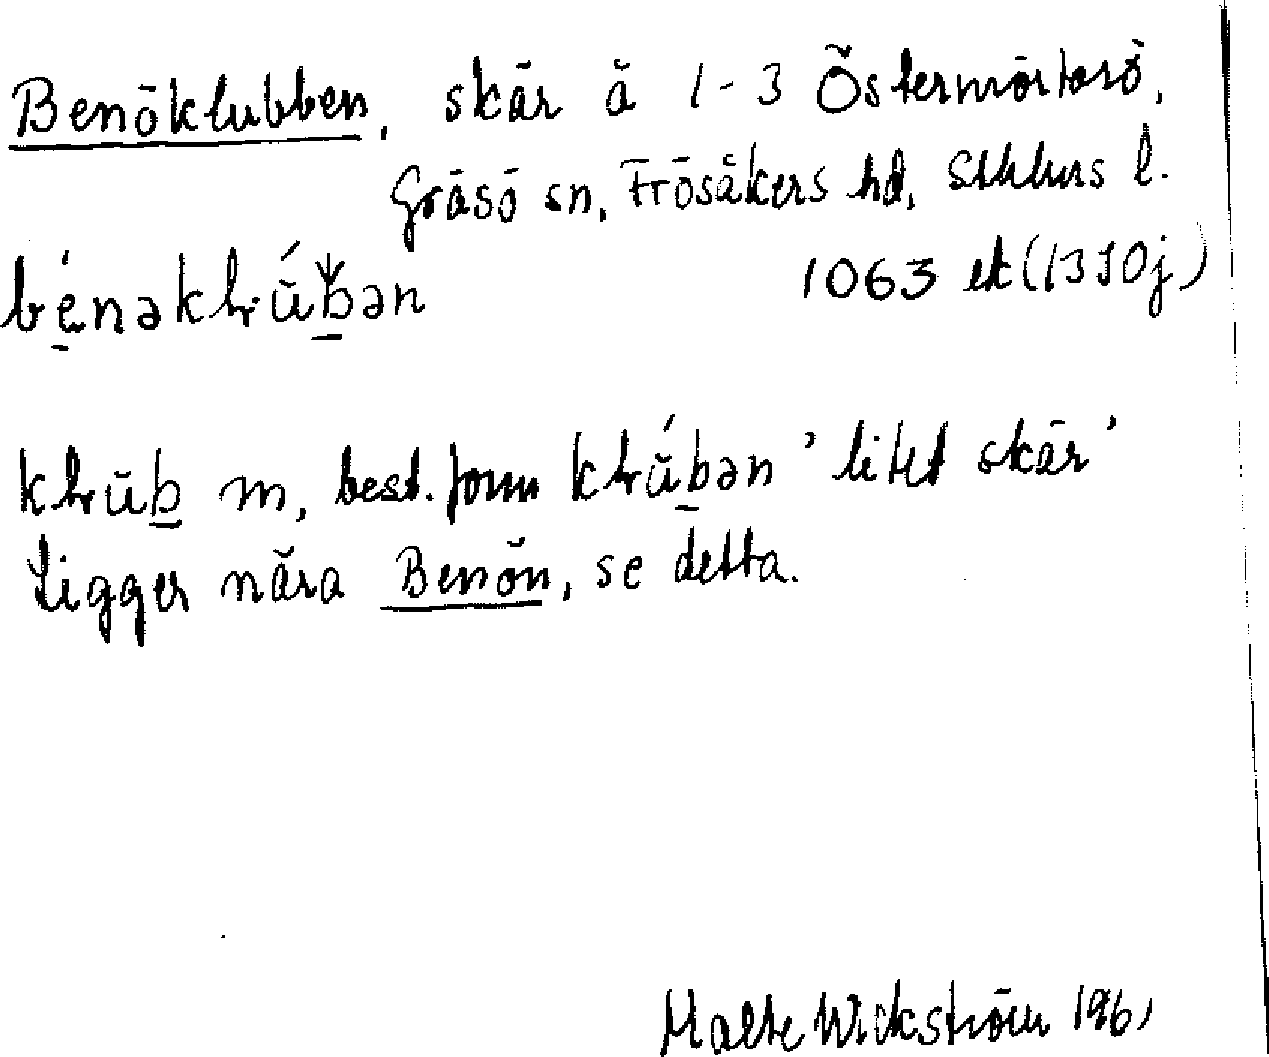 Benöklubben, skär å 1-3 Östermörtarö,
Gräsö sn, Frösåkers hd, Sthlms l.
1063 ek (13I0j)
bénəklúbən
klub m, best. form klúbən 'litet skär'
Ligger nära Benön, se detta.
Malte Wickström 1961